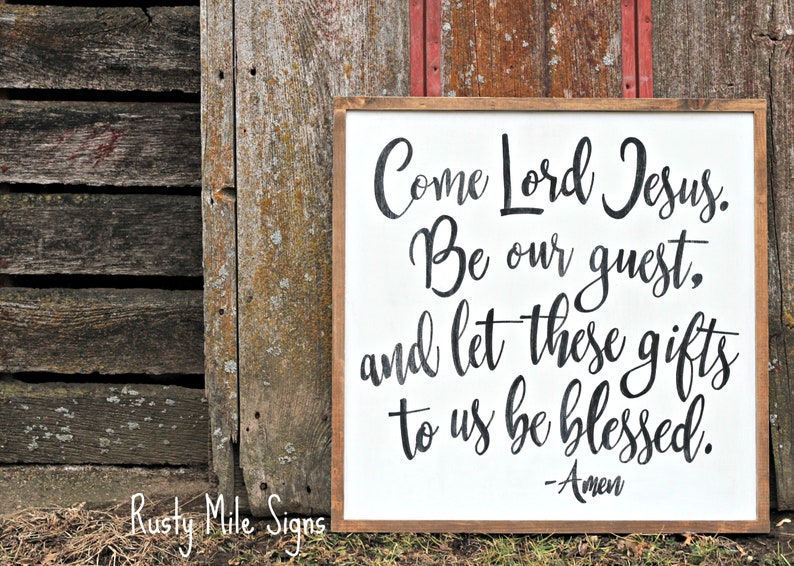 Come Lord Jesus.
Be our guest,
and let these gifts
to us be blessed.
-Amen
Rusty Mile Signs